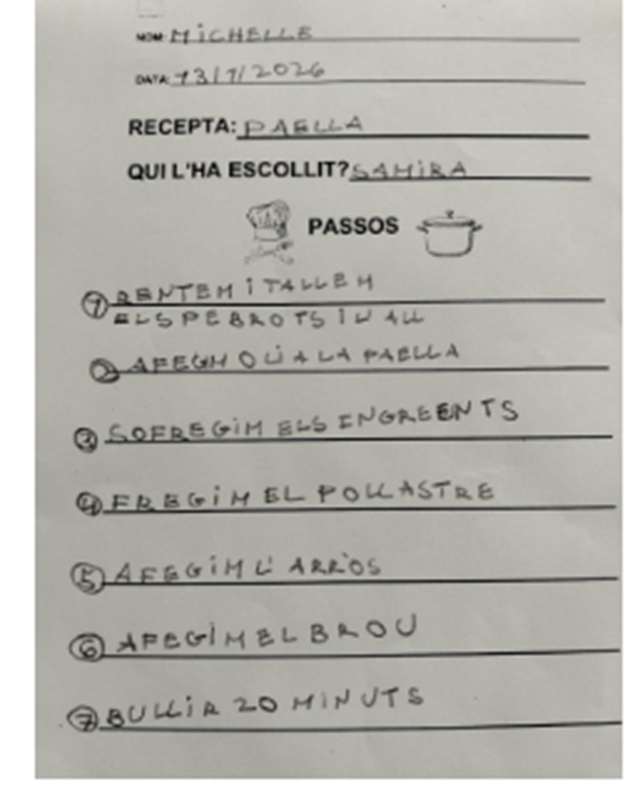 NOM: MICHELLE
DATA: 13/1/2026
RECEPTA: PAELLA
QUI L'HA ESCOLLIT? SAMIRA
PASSOS
1 RENTEM I TALLEM
ELS PEBROTS I L'ALL
2 AFEGIM OLI A LA PAELLA
3 SOFREGIM ELS INGREENTS
4 FREGIM EL POLLASTRE
5 AFEGIM L'ARRÒS
6 AFEGIM EL BROU
7 BULLIR 20 MINUTS